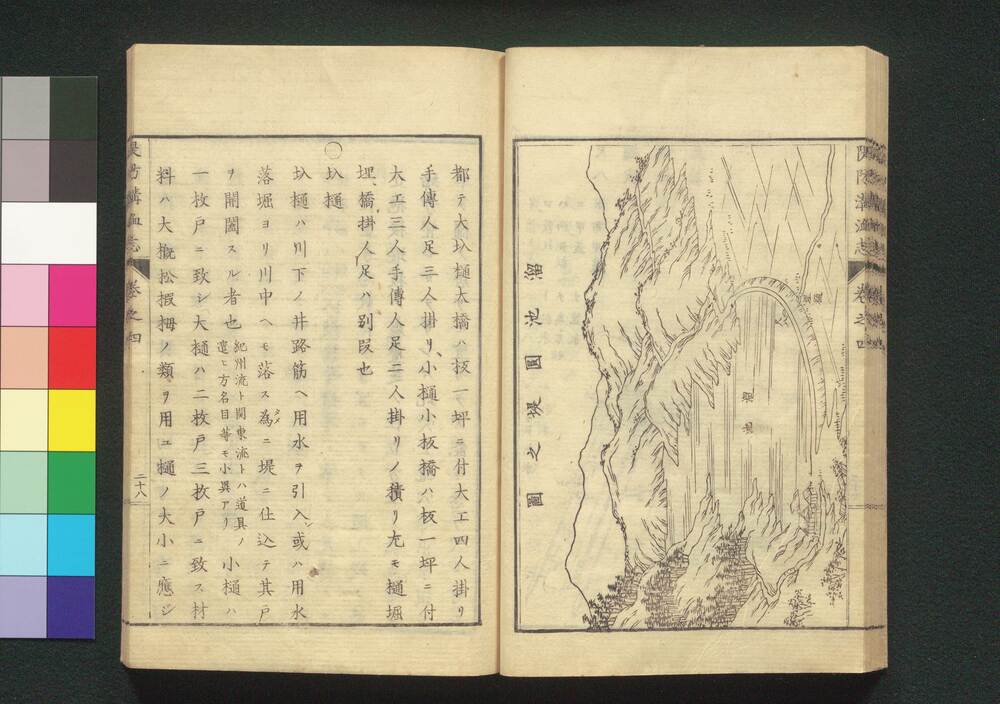 溜池圍堤之圖
溜井
卷之四
都テ大圦樋大橋ハ板一坪ニ付大工四人掛リ
手傳人足三人掛リ、小樋小板橋ハ板一坪ニ付
大工三人手傳人足二人掛リノ積リ尤モ樋堀
埋、橋掛人足ハ別段也
○
圦樋
圦樋ハ川下ノ井路筋ヘ用水ヲ引入、或ハ用水
落堀ヨリ川中ヘモ落ス為ニ堤ニ仕込テ其戸
ヲ開闔スル者也 紀州流ト関東流トハ道具ノ遣ヒ方名目等モ小異アリ 小樋ハ
一枚戸ニ致シ大樋ハ二枚戸三枚戸ニ致ス材
料ハ大概松椵栂ノ類ヲ用ユ樋ノ大小ニ應シ
卷之四
二十八